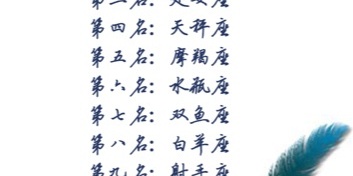 第三名：处女座
第四名：天秤座
第五名：摩羯座
第六名：水瓶座
第七名：双鱼座
第八名：白羊座
第九名：射手座